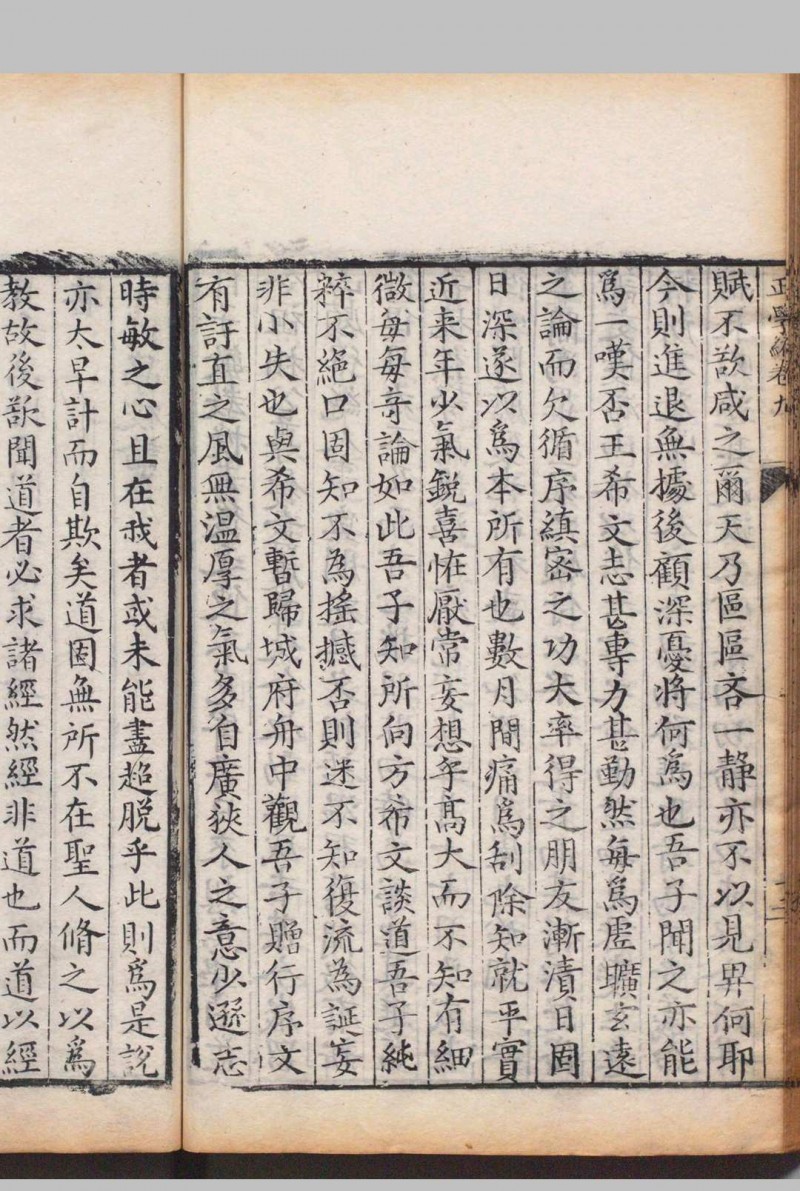 正學編卷九
賦不歆咸之爾天乃區區吝一静亦不以見畀何耶
今則進退無據後顧深憂將何爲也吾子聞之亦能
爲一嘆否王希文志甚專力甚勤然每爲虛曠玄遠
之論而欠循序縝密之功大率得之朋友漸漬日固
日深遂以爲本所有也數月間痛爲刮除知就平實
近来年少氣鋭喜恠厭常妄想乎髙大而不知有細
微每每竒論如此吾子知所向方希文談道吾子純
粹不絶口固知不為摇撼否則迷不知復流為誕妄
非小失也與希文暫歸城府舟中觀吾子贈行序文
有訐直之風無温厚之氣多自廣狹人之意少遜志
時敏之心且在我者或未能盡超脱乎此則爲是説
亦太早計而自欺矣道固無所不在聖人脩之以爲
教故後歆聞道者必求諸經然經非道也而道以經